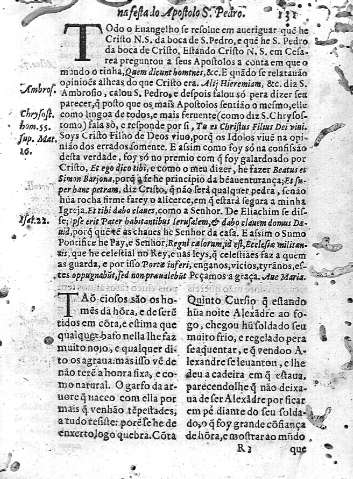 na festa do Apostolo S. Pedro. 131
TOdo o Euangelho se resolue em aueriguar quẽ he
Cristo N.S. da boca de S. Pedro, e quẽ he S. Pedro
da boca de Cristo, Estãdo Cristo N. S. em Cesa-
rea preguntou a seus Apostolos a conta em que o
mundo o tinha, Quem dicunt homines, &c. E quãdo se relatauão
opiniões alheas do que Cristo era. Alij Hieremiam, &c. diz S.
Ambrosio, calou S. Pedro, e despois falou só pera dizer seu
parecer, q̃ posto que os mais Apostolos sentião o mesmo, elle
como lingoa de todos, e mais feruente (como diz S. Chrysos-
tomo) fala só, e responde por si, Tu es Christus Filius Dei viui.
Soys Cristo Filho de Deos viuo, porq̃ os Idolos viuẽ na opi-
nião dos errados somente. E assim como foy só na confissão
desta verdade, foy só no premio com q̃ foy galardoado por
Cristo, Et ego dico tibi, e como o meu dizer, he fazer Beatus es
Simon Bariona, porq̃ a fe he principio da beauenturança, Et su-
per hanc petram, diz Cristo, q̃ não será qualquer pedra, senão
hũa rocha firme farey o alicerce, em q̃ estará segura a minha
Igreja. Et tibi dabo claues, como a Senhor. De Eliachim se dis-
se; ipse erit Pater habitantibus Ierusalem, & dabo clauem domus Da-
uid, porq̃ quẽ tẽ as chaues he Senhor da casa. E assim o Sumo
Pontifice he Pay, e Senhor, Regni cælorum, id est, Ecclesiæ militan-
tis, que he celestial no Rey, e nas leys, q̃ celestiães faz a quem
as guarda, e por isso Portæ inferi, enganos, vicios, tyrãnos, es-
tes oppugnabũt, sed non præualebũt Peçamos a graça. Aue Maria.
Ambros.
Chrysost.
hom. 55.
sup. Mat.
16.
Isai. 22.
TAõ ciosos são os ho-
mẽs da hõra, e de serẽ
tidos em cõta, e estima que
qualquer bafo nella lhe faz
muito nojo, e qualquer di-
to os agraua: mas isso vẽ de
não terẽ a honra fixa, e co-
mo natural. O garfo da ar-
uore q̃ naceo com ella por
mais q̃ venhão tẽpestades,
a tudo resiste: porẽ se he de
enxerto logo quebra. Cõta
Quinto Cursio q̃ estando
hũa noite Alexãdre ao fo-
go, chegou hũ soldado seu
muito frio, e regelado pera
se aquentar, e q̃ vendo A-
lexandre se leuanton, e lhe
deu a cadeira em q̃ estaua,
parecendolhe q̃ não deixa-
ua de ser Alexãdre por ficar
em pẽ diante do seu solda-
do, o q̃ foy grande cõfiança
de hõra, e mostrar ao mũdo
R 3 que